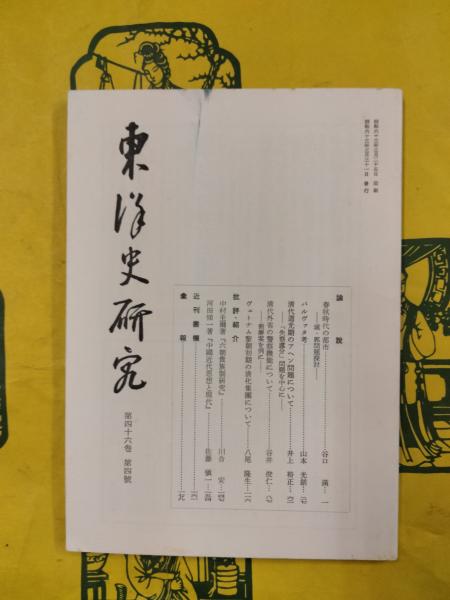 昭和六十三年三月二十五日 印刷
昭和六十三年三月三十一日 發行
論說
春秋時代の都市
——城・郭問題探討——
谷口 滿…一
パルヴァタ考
山本 光朗…
清代道光期のアヘン問題について
——「失察處分」問題を中心に——
井上 裕正…
清代外省の警察機能について
——割辮案を例に——
谷井 俊仁…
ヴェトナム黎朝初期の清化集團について
八尾 隆生…
批評・紹介
中村圭爾著『六朝貴族制研究』
川合 安…
河田悌一著『中國近代思想と現代』
佐藤 愼一…
近刊書欄
彙報
東洋史研究
第四十六卷 第四號